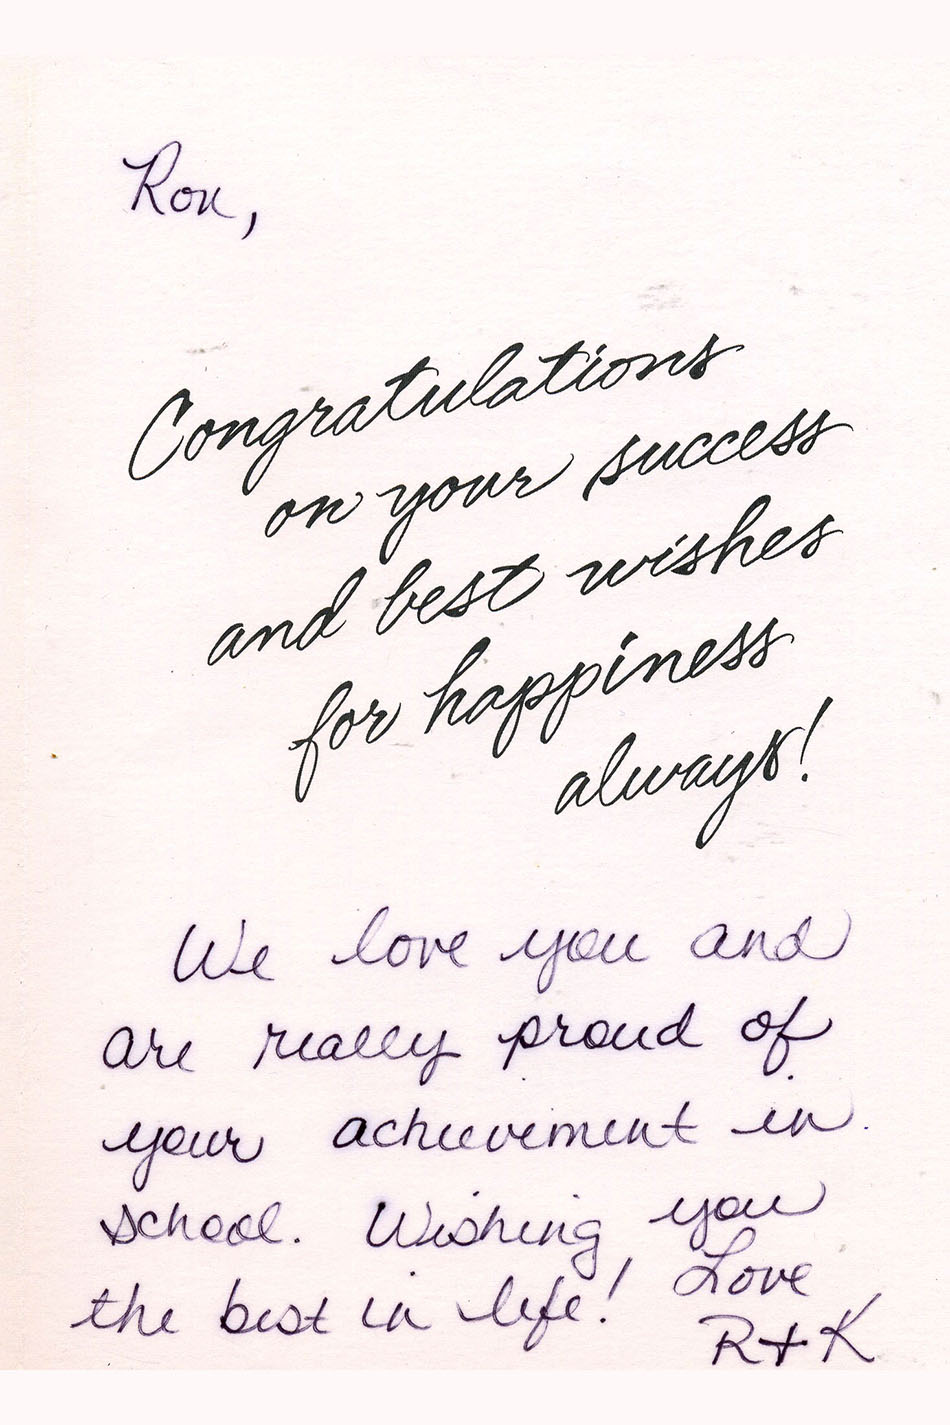 Ron,
Congratulations
on your success
and best wishes
for happiness
always!
We love you and
are really proud of
your achievement in
school. Wishing you
the best in life! Love
R+K